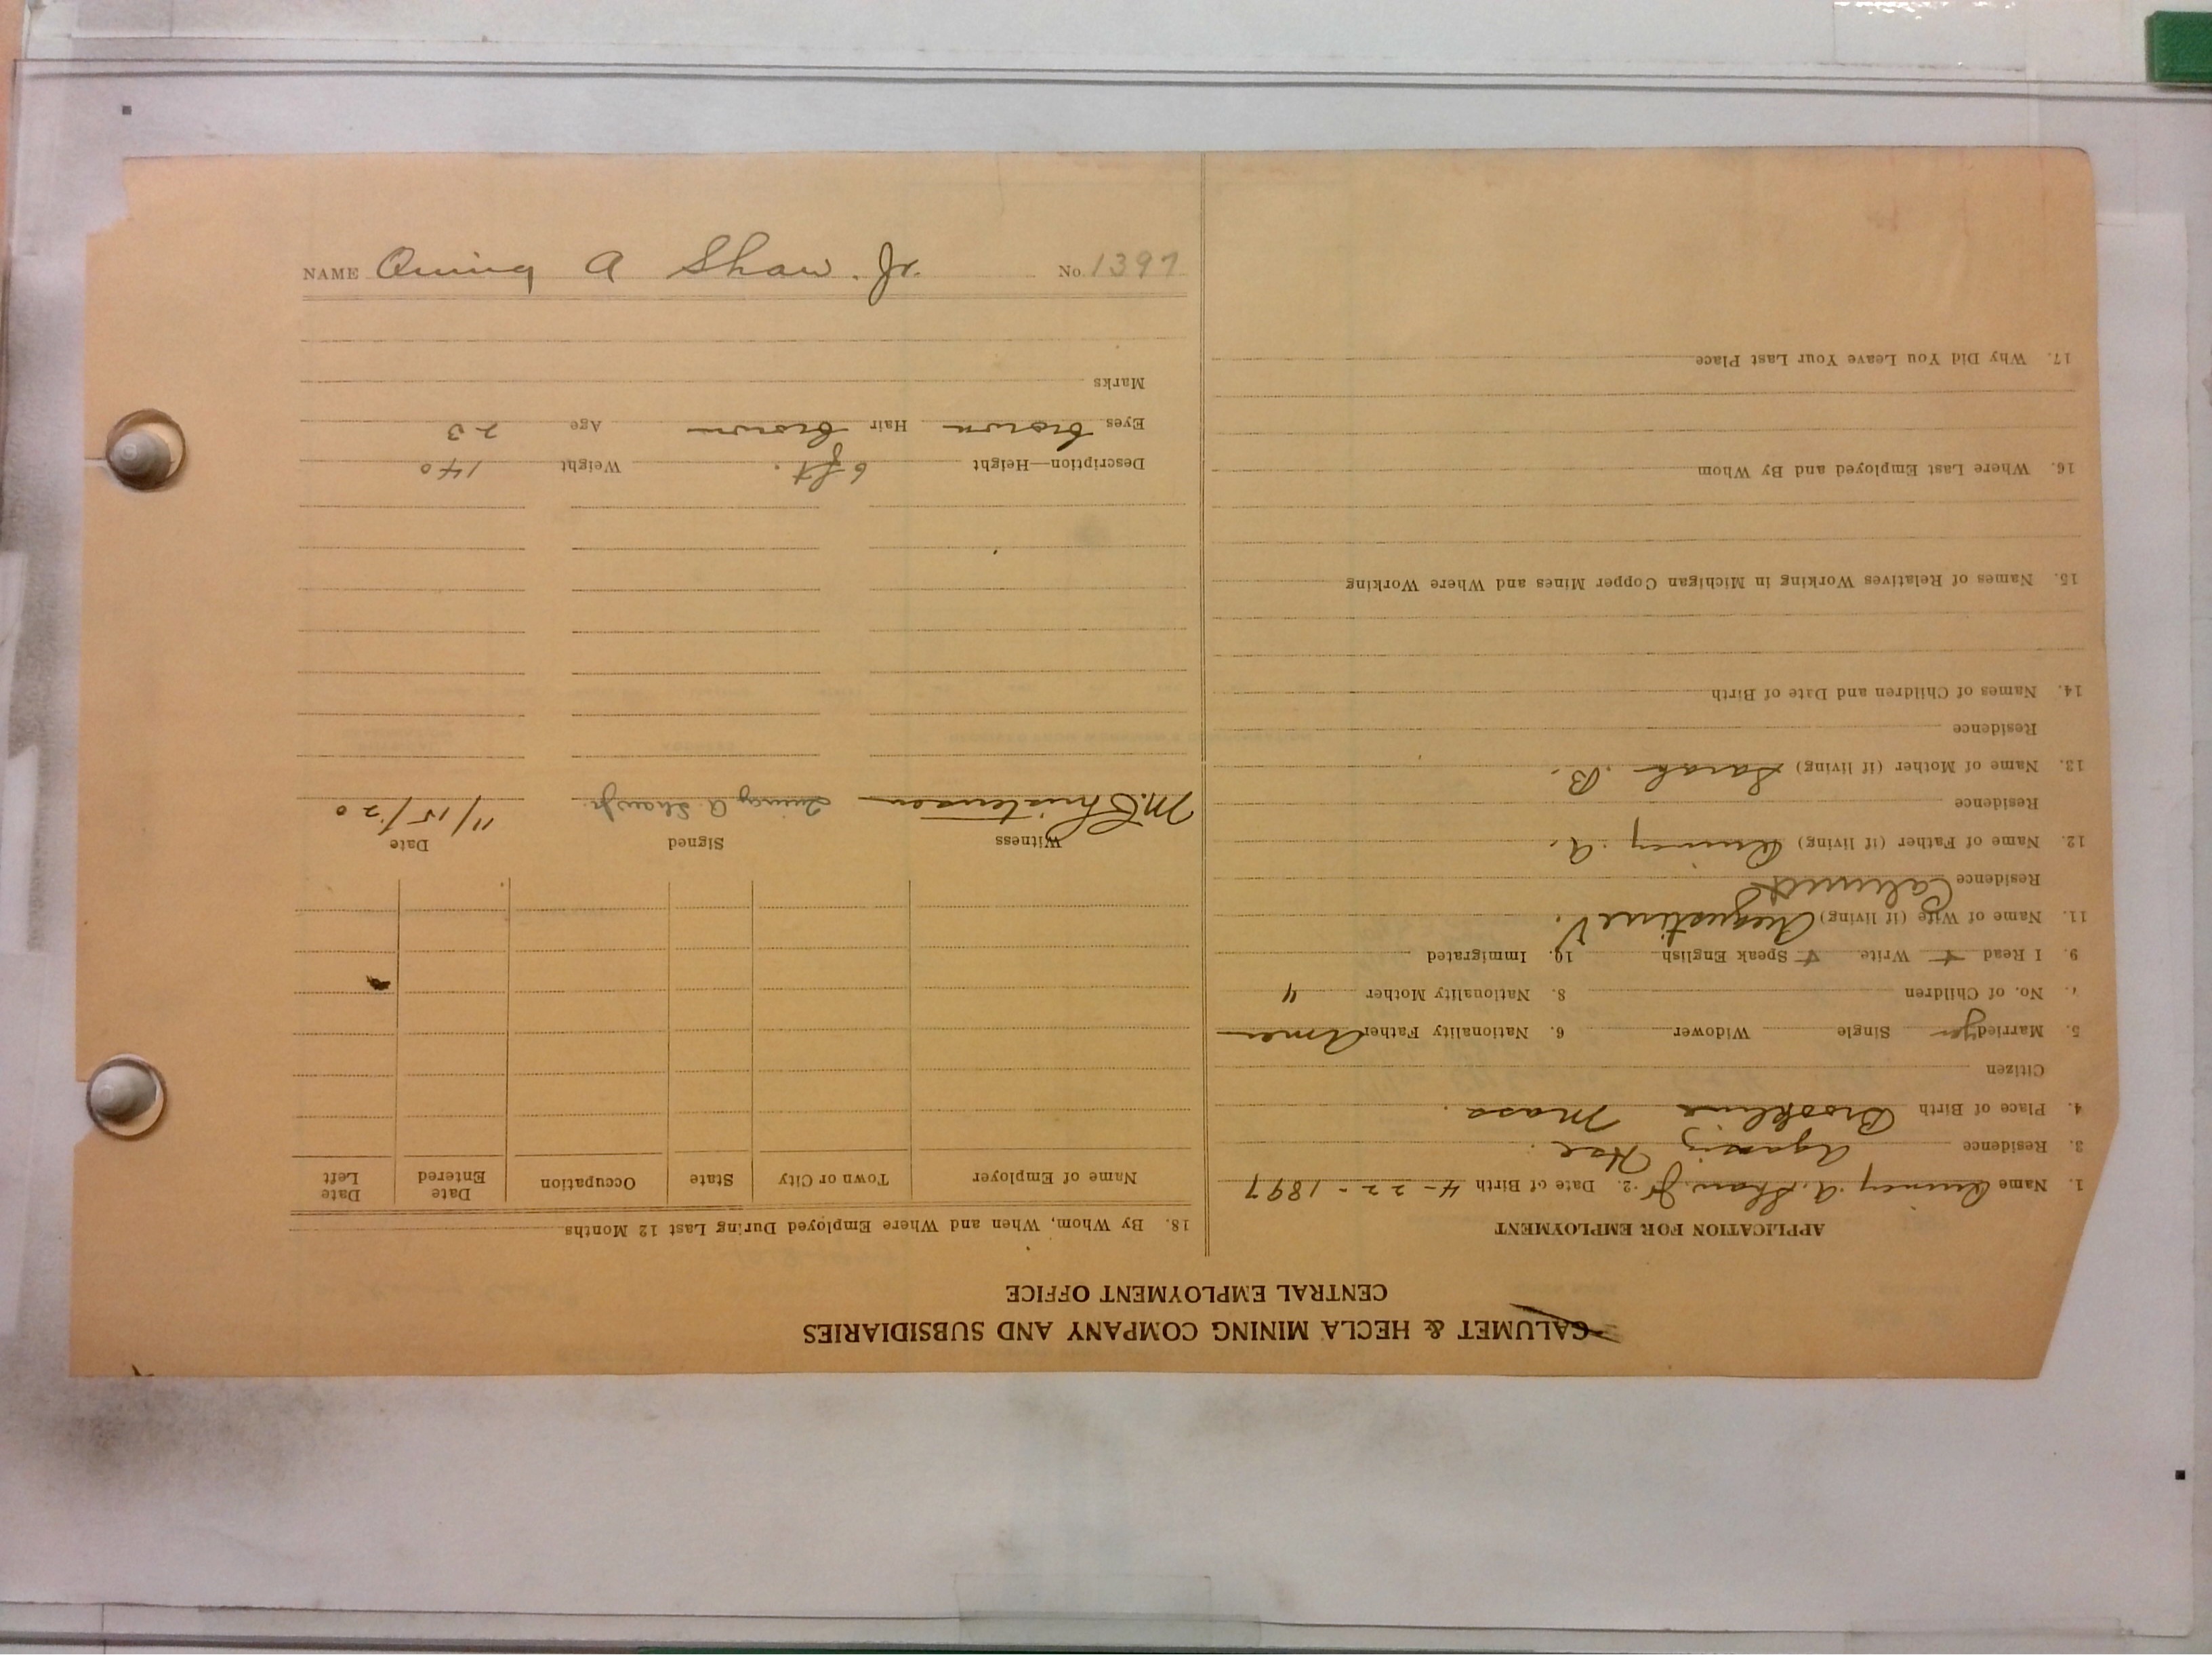 NAME Quincy A Shaw. Jr. No. 1397
CALUMET & HECLA MINING COMPANY AND SUBSIDIARIES
CENTRAL EMPLOYMENT OFFICE
APPLICATION FOR EMPLOYMENT
1. Name Quincy A. Shaw Jr. 2. Date of Birth 4-22-1897
3. Residence Agassiz Hse.
4. Place of Birth Brookline Mass.
Citizen
5. Married yes Single Widower 6. Nationality Father Amer
7. No. of Children 8. Nationality Mother "
9. I Read Write Speak English 10. Immigrated
11. Name of Wife (if living) Augustine V.
Residence Calumet
12. Name of Father (if living) Quincy A.
Residence
13. Name of Mother (if living) Sarah B.
Residence
14. Names of Children and Date of Birth
15. Names of Relatives Working in Michigan Copper Mines and Where Working
16. Where Last Employed and By Whom
17. Why Did You Leave Your Last Place
18. By Whom, When and Where Employed During Last 12 Months
Name of Employer Town or City State Occupation Date Entered Date Left
Witness Signed Date
M. Christensen Quincy A. Shaw Jr. 11/15/20
Description—Height 6 ft. Weight 140
Eyes brown Hair brown Age 23
Marks